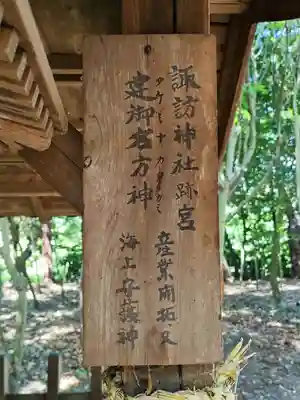 諏訪神社跡宮
産業開拓・又
タケミナカタノカミ
建御名方神
海上守護神